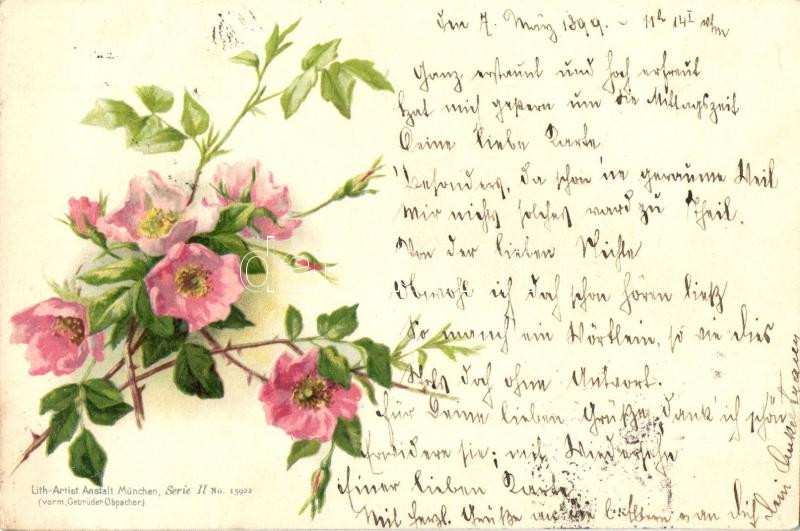 den 7. März 1899. - 11h 14I Vm
Ganz erstaunt und hoch erfreut
Hat mich gestern um die Mittagszeit
Deine liebe Karte
Besonders, da schon 'ne geraume Weil
Mir nichts solches ward zu Theil.
Von der lieben Nichte
Obwohl ich doch schon hören ließ
So manch' ein Wörtlein, so wie dies
Stets doch ohne Antwort.
Für Deine lieben Grüße, dank' ich schön
Erwidere sie; mit Wiedersehn
Einer lieben Karte
Mit herzl. Grüße an die Eltern u an Dich
Dein Onkel
Lith-Artist. Anstalt München, Serie II No. 15922
(vorm. Gebrüder Obpacher)